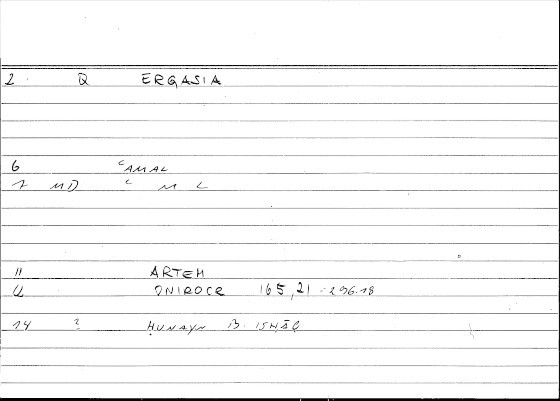 2 Q ERGASIA
6 ʿAMAL
7 MD ʿ M L
11 ARTEM
12 ONIROCR 165,21 - 296.18
14 ? ḤUNAYN B. ISḤĀQ